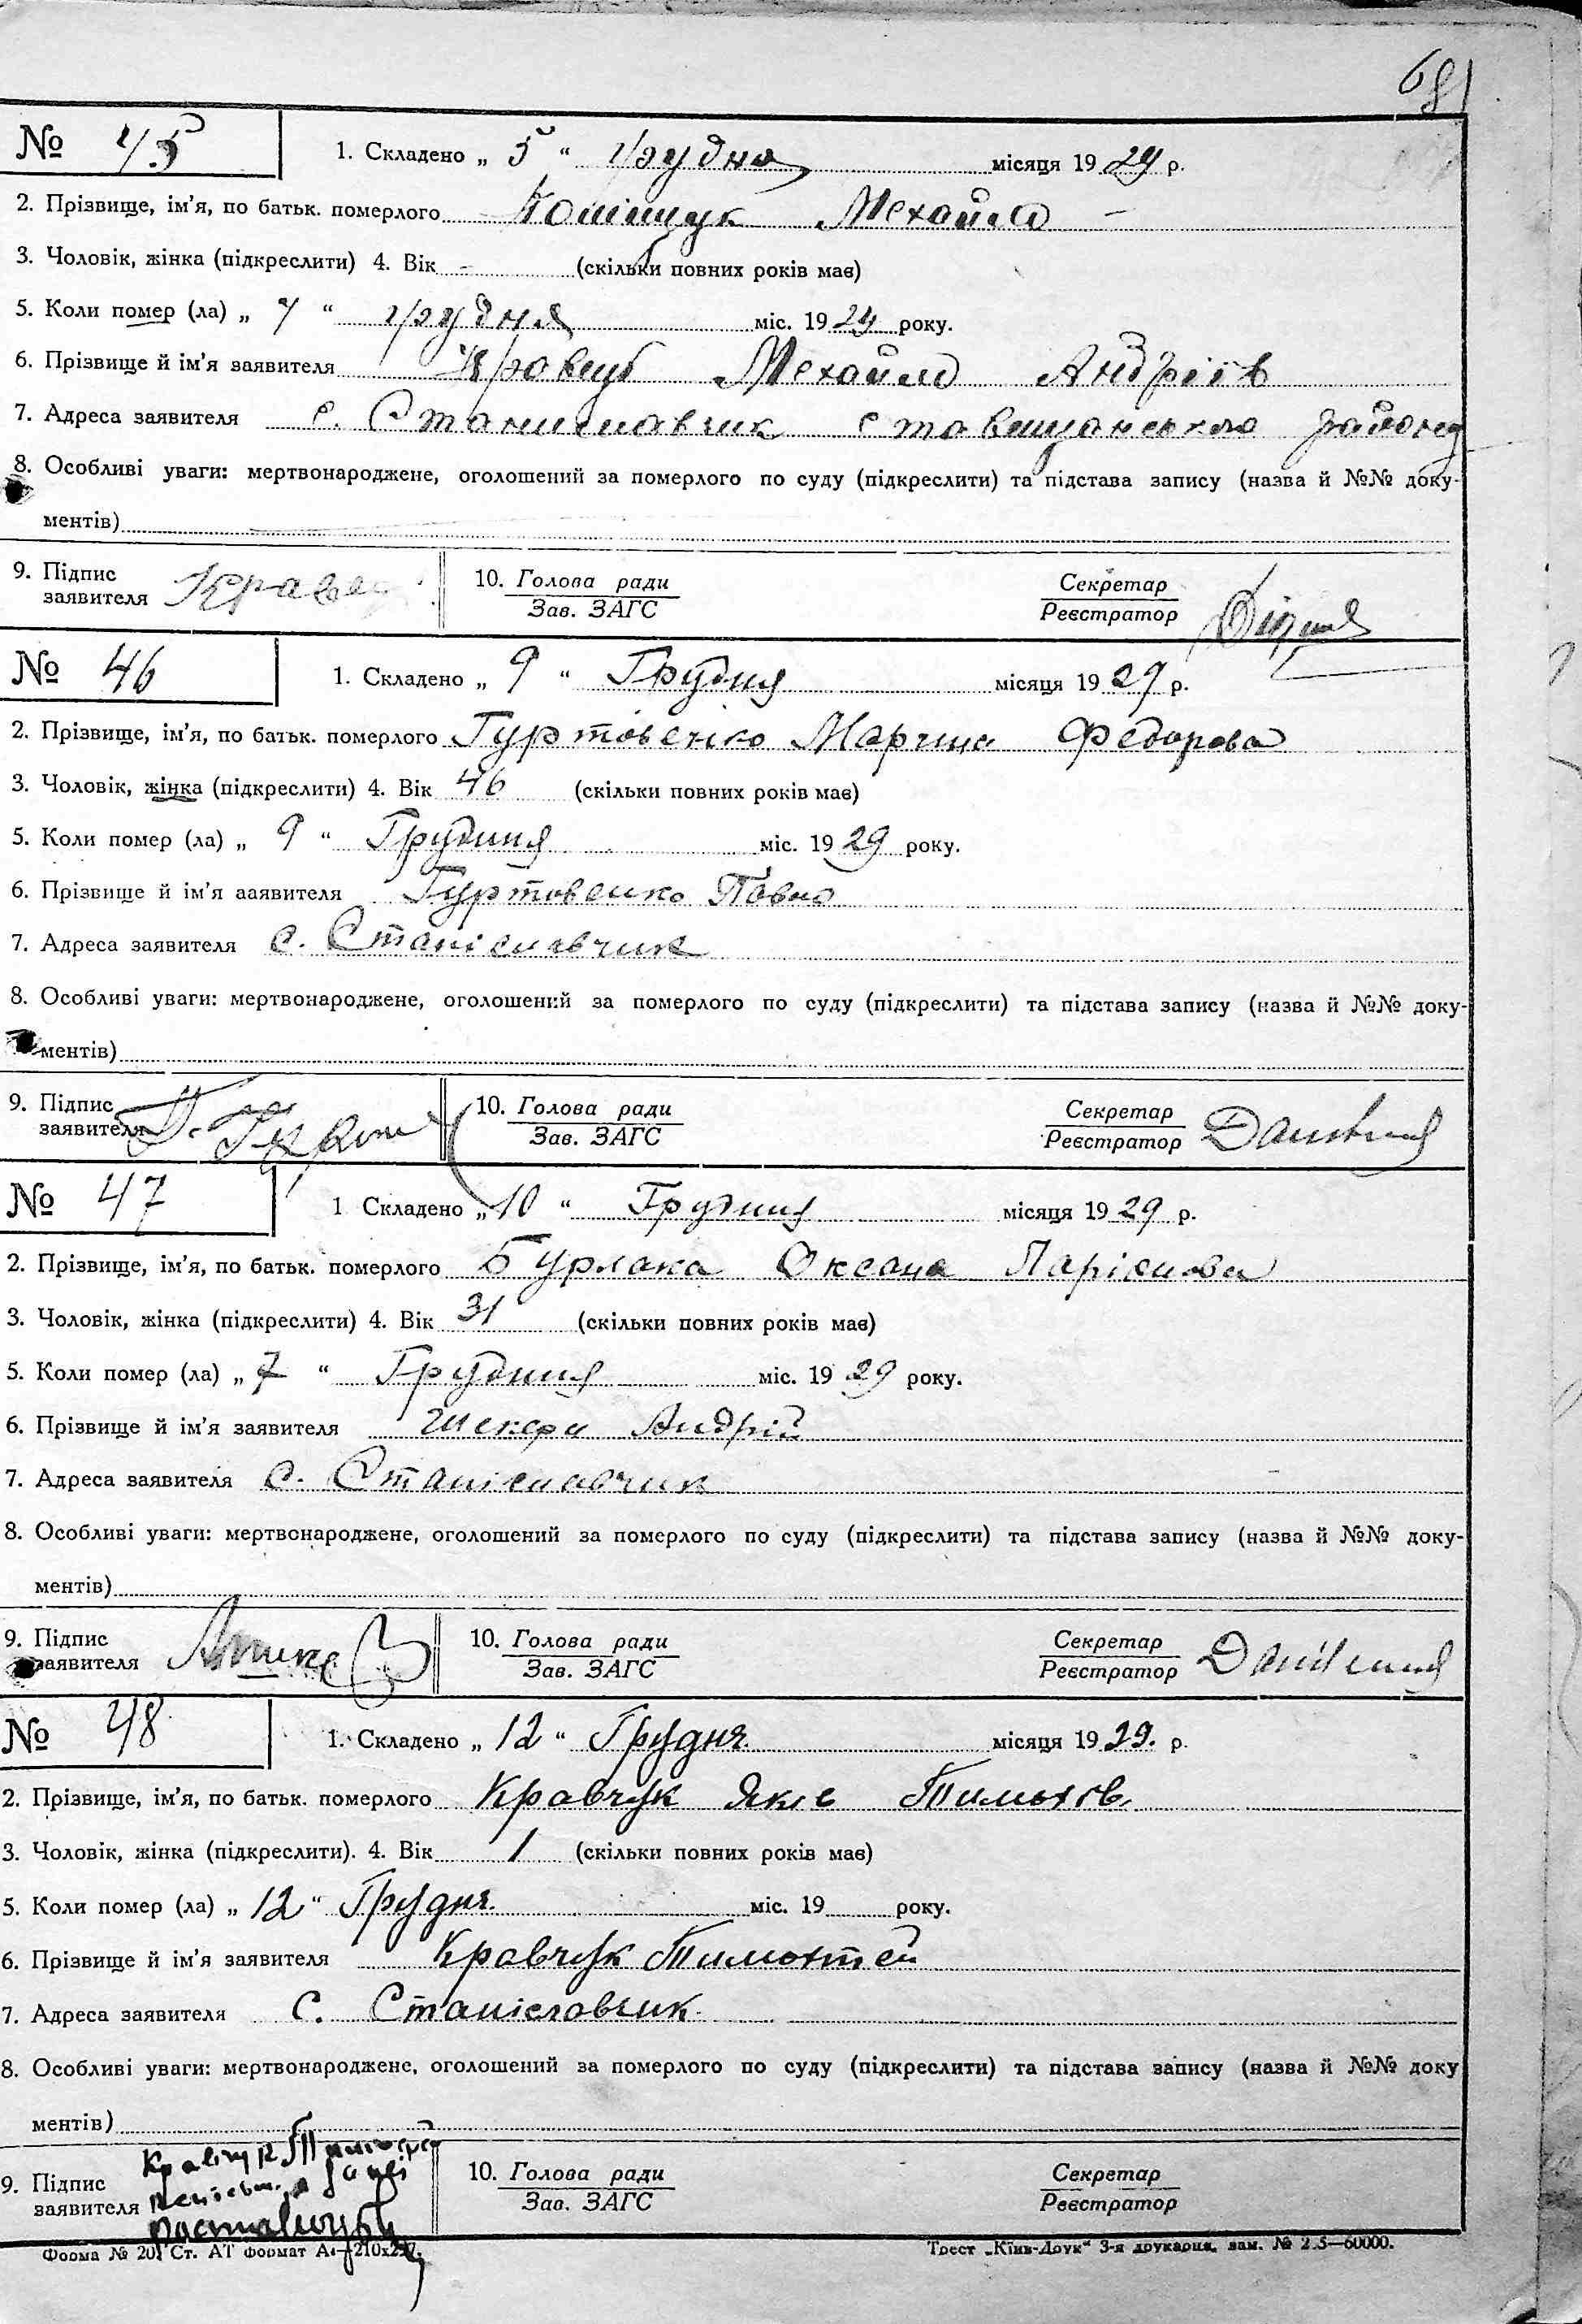 68
№ 45 1. Складено „ 5 “ грудня місяця 19 29 р.
2. Прізвище, ім'я, по батьк. померлого Михайло
3. Чоловік, жінка (підкреслити) 4. Вік - (скільки повних років має)
5. Коли помер (ла) „ 4 “ грудня міс. 19 29 року.
6. Прізвище й ім'я заявителя Кравець Михайло Андріїв
7. Адреса заявителя с. Станиславчик Ставищанського району
8. Особливі уваги: мертвонароджене, оголошений за померлого по суду (підкреслити) та підстава запису (назва й №№ доку-
ментів)
9. Підпис заявителя Кравец 10. Голова ради Секретар
Зав. ЗАГС Реєстратор
№ 46 1. Складено „ 9 “ Грудня місяця 19 29 р.
2. Прізвище, ім'я, по батьк. померлого Гуртовенко Марина Федорова
3. Чоловік, жінка (підкреслити) 4. Вік 46 (скільки повних років має)
5. Коли помер (ла) „ 9 “ Грудня міс. 19 29 року.
6. Прізвище й ім'я ааявителя Гуртовенко Павло
7. Адреса заявителя с. Станіславчик
8. Особливі уваги: мертвонароджене, оголошений за померлого по суду (підкреслити) та підстава запису (назва й №№ доку-
ментів)
9. Підпис заявителя 10. Голова ради Секретар
Зав. ЗАГС Реєстратор
№ 47 1 Складено „ 10 “ Грудня місяця 19 29 р.
2. Прізвище, ім'я, по батьк. померлого Бурлака Оксана Ларіонова
3. Чоловік, жінка (підкреслити) 4. Вік 31 (скільки повних років має)
5. Коли помер (ла) „ 7 “ Грудня міс. 19 29 року.
6. Прізвище й ім'я заявителя Шкера Андрій
7. Адреса заявителя с. Станіславчик
8. Особливі уваги: мертвонароджене, оголошений за померлого по суду (підкреслити) та підстава запису (назва й №№ доку-
ментів)
9. Підпис заявителя 10. Голова ради Секретар
Зав. ЗАГС Реєстратор
№ 48 1. Складено „ 12 “ Грудня місяця 19 29. р.
2. Прізвище, ім'я, по батьк. померлого Кравчук Яків Тимохів
3. Чоловік, жінка (підкреслити). 4. Вік 1 (скільки повних років має)
5. Коли помер (ла) „ 12 “ Грудня міс. 19 року.
6. Прізвище й ім'я заявителя Кравчук Тимохтей
7. Адреса заявителя С. Станіславчик
8. Особливі уваги: мертвонароджене, оголошений за померлого по суду (підкреслити) та підстава запису (назва й №№ доку
ментів)
9. Підпис заявителя Кравчук 10. Голова ради Секретар
Зав. ЗАГС Реєстратор
Форма № 20. Ст. АТ формат А4—210х297. Трест „Київ-Друк“ 3-я друкарня, зам. № 2.5—60000.